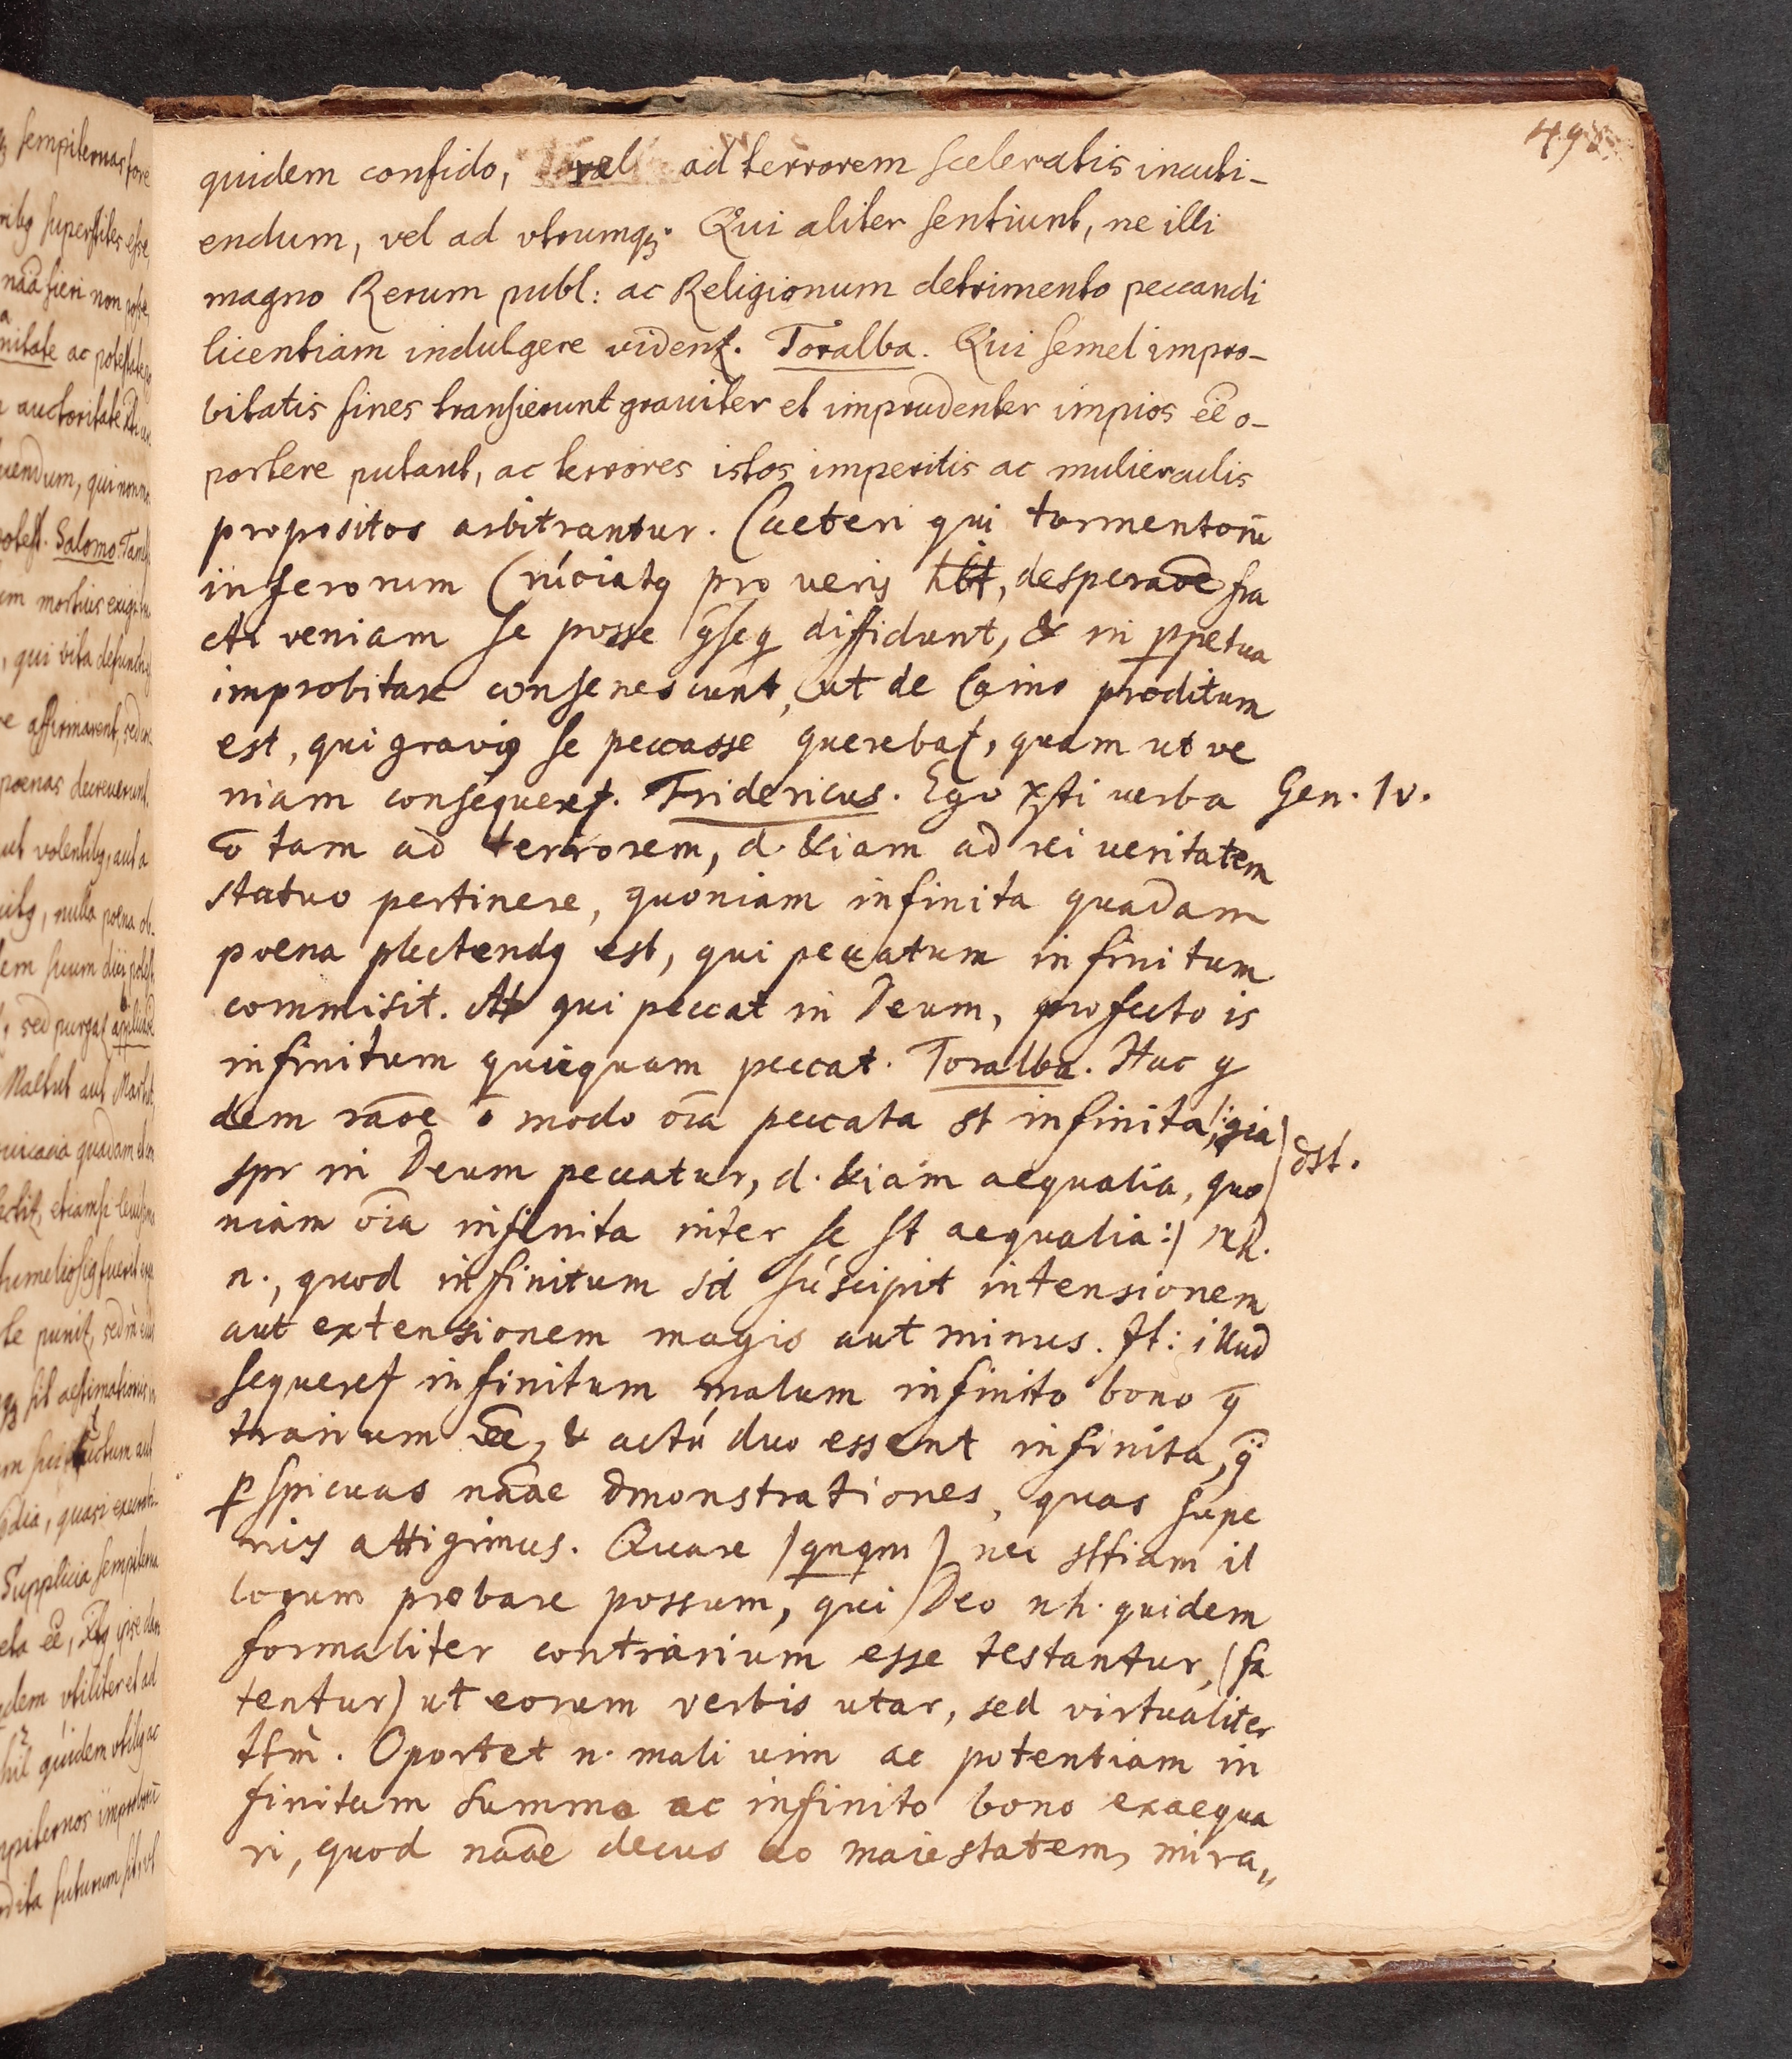 498
quidem confido, vel ad terrorem sceleratis incuti-
endum, vel ad vtrumqꝫ. Qui aliter sentiunt, ne illi
magno Rerum publ: ac Religionum detrimento peccandi
licentiam indulgere videnꝉ. Toralba. Qui semel impro-
bitatis fines transierunt grauiter et imprudenter impios ēē o-
portere putant, ac terrores istos imperitis ac mulierculis
propositos arbitrantur. Caeteri qui tormentorū
inferorum Cruciatꝯ pro ueris hbt, desperaōe fra
cti veniam se posse q̄seq̄ diffidunt, & in ꝑpetua
improbitate consenescunt, ut de Caino proditum
est, qui graviꝯ se peccasse querebaꝉ, quam ut ve
niam consequereꝉ. Fridericus. Ego Xsti uerba Gen. IV.
ō tam ad terrorem, d. etiam ad rei ueritatem
statuo pertinere, quoniam infinita quadam
poena plectendꝯ est, qui peccatum infinitum
commisit. At qui peccat in Deum, profecto is
infinitum quicquam peccat. Toralba. Hac q
dem raōe ō modo oīa peccata st infinita, (:qia
spr in Deum peccatur, d. etiam aequalia, quo dst.
niam oīa infinita inter se st aequalia:)
n., quod infinitum sit suscipit intensionem
aut extensionem magis aut minus. It: illud
sequereꝉ infinitum malum infinito bono q̄
trarium ēē, & actú duo essent infinita, q̄
ꝑspicuas nāae dmonstrationes, quas supe
riꝯ attigimus. Quare (qnqm) nec sttiam il
lorum probare possum, qui Deo nh. quidem
formaliter contrarium esse testantur, (fa
tentur) ut eorum verbis utar, sed virtualiter
ttm̄. Oportet n. mali uim ac potentiam in
finitum summo ac infinito bono exaequa
ri, quod nāae decus ac maiestatem, mira„